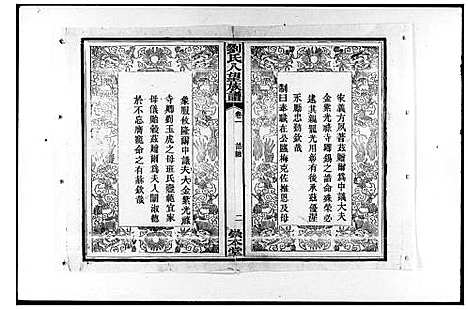 家義方夙著茲贈爾爲中議大夫
金紫光祿寺卿錫之誥命殊榮必
逮其親寵光用彰有後承茲優渥
永勵忠勤欽哉
制曰奉職在公臨梅克佐推恩及母
劉氏八望族譜
卷一
誥勅
二
敦本堂
象服攸隆爾中議大夫金紫光祿
寺卿劉玉虎之母班氏壼範宜家
母儀貽穀茲贈爾爲夫人闡淑德
於不忘膺寵命之有赫欽哉